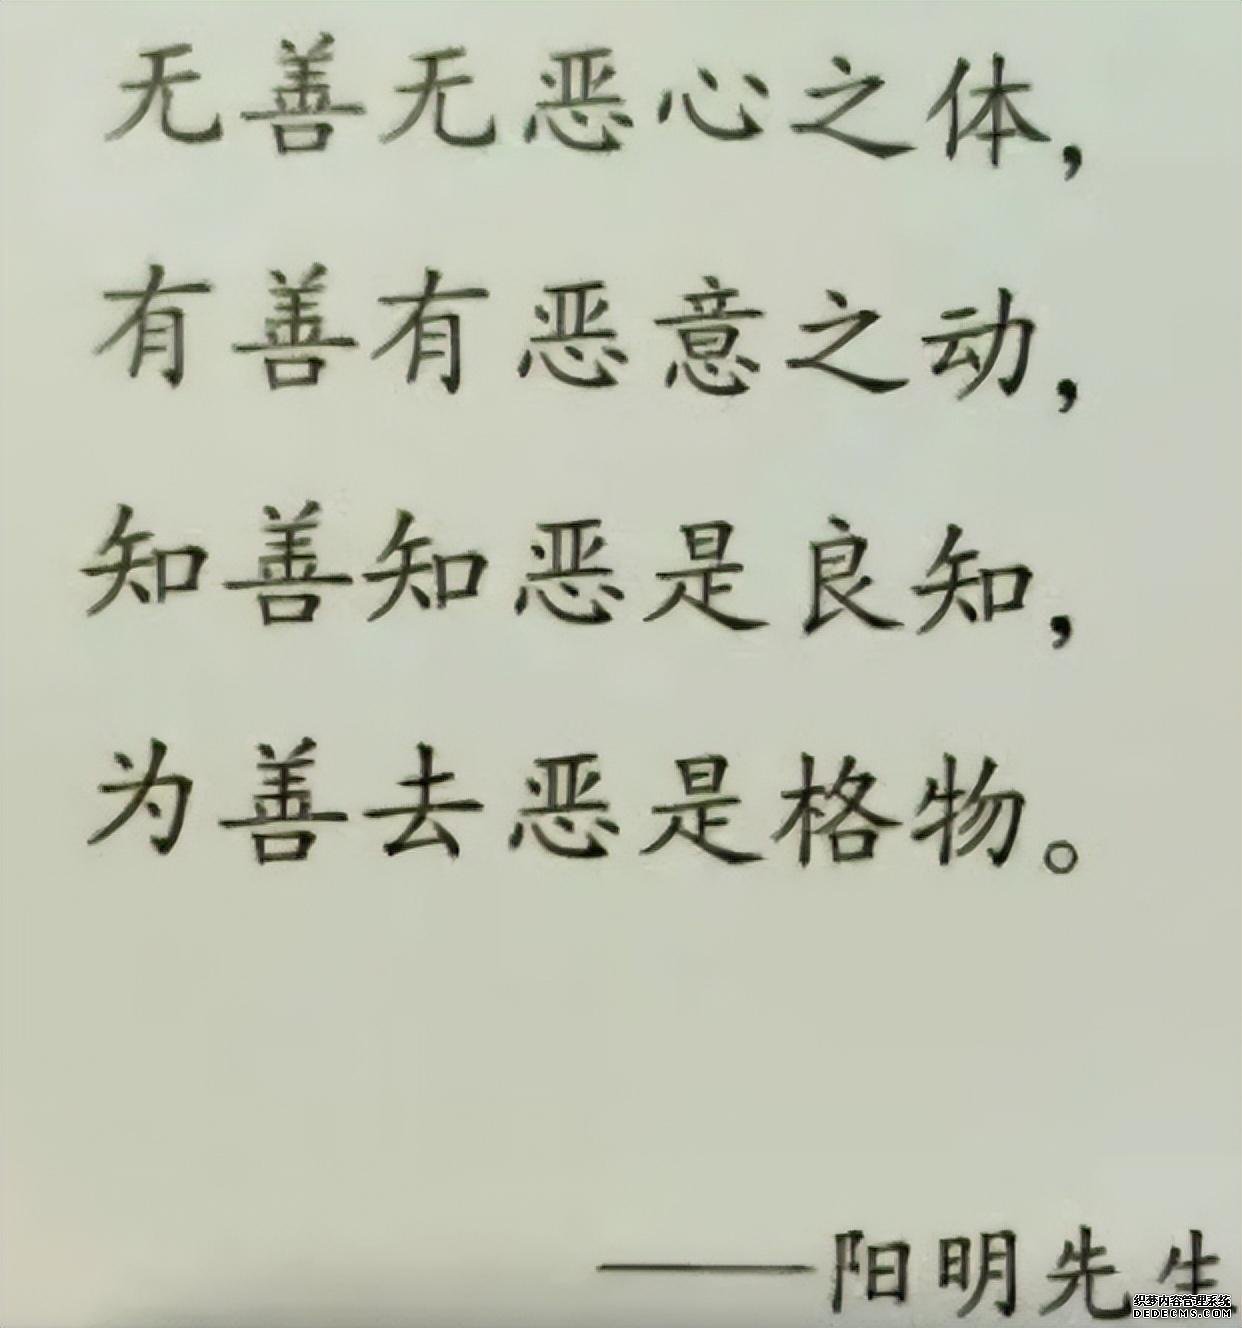 无善无恶心之体，
有善有恶意之动，
知善知恶是良知，
为善去恶是格物。
——阳明先生
织梦内容管理系统
DEDECMS.COM